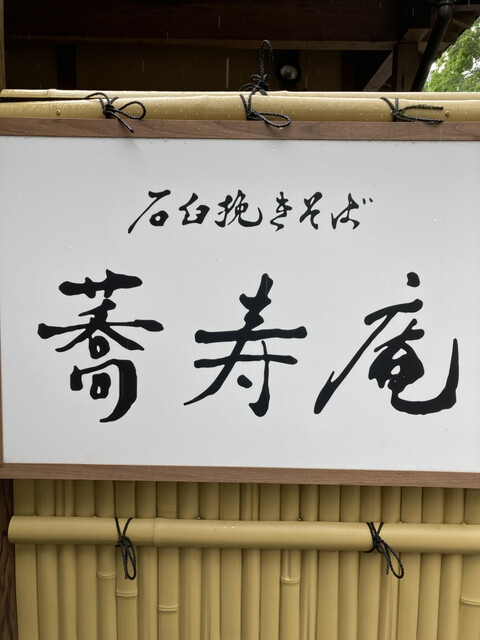 石臼挽きそば
蕎寿庵